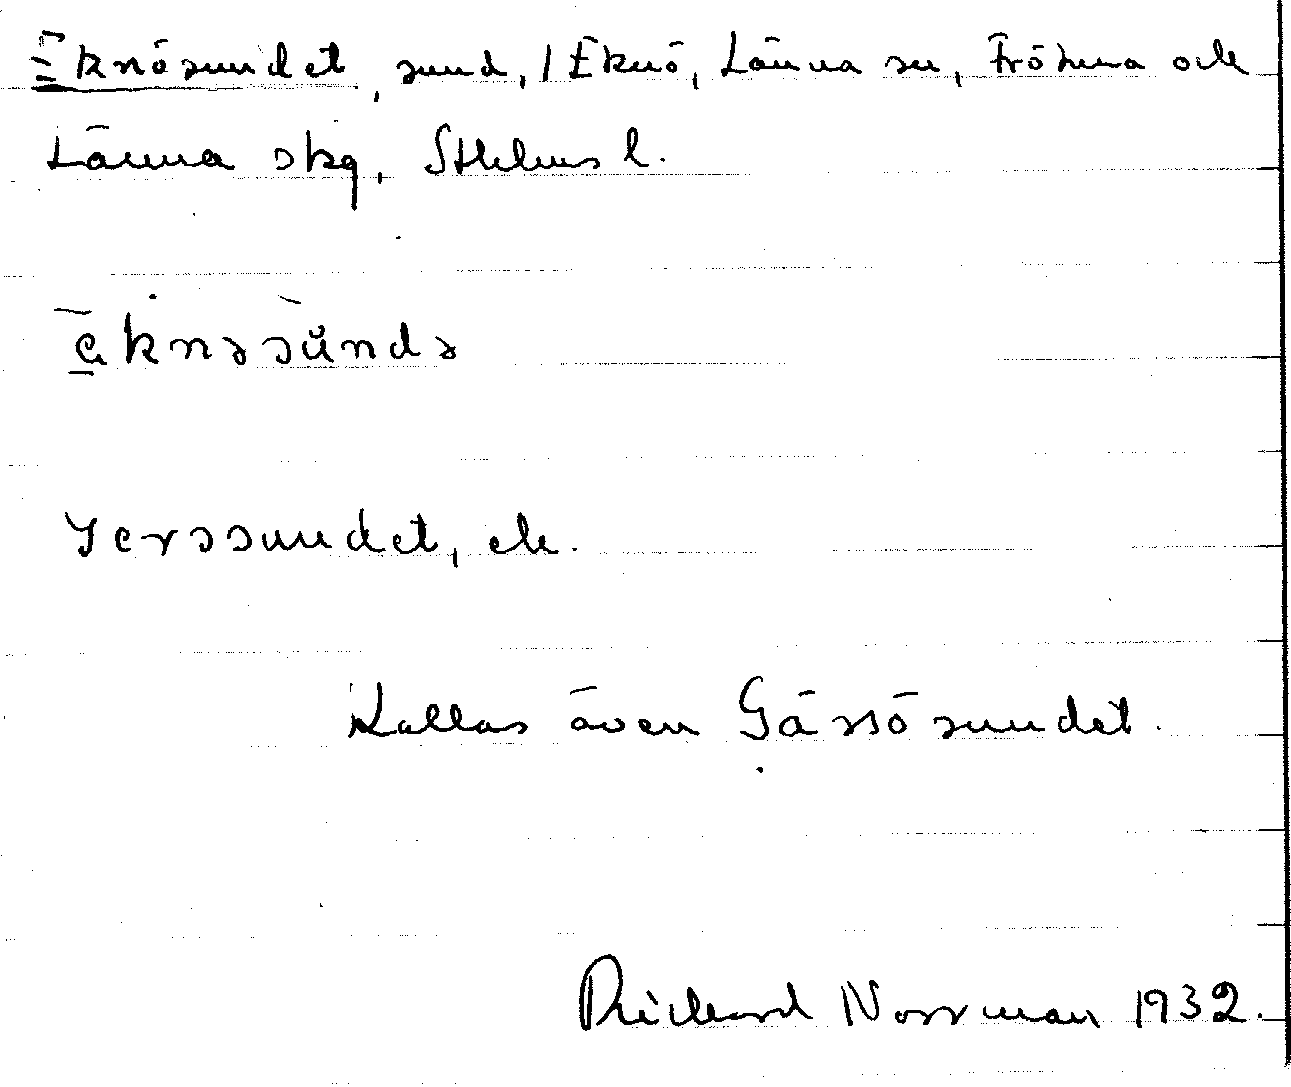 Eknösundet, sund, / Eknö, Länna sn, Frötuna och
Länna skg, Sthlms l.
ēknɘsūndɘ
Jerssundet, ek.
Kallas även Gässösundet.
Richard Norrman 1932.